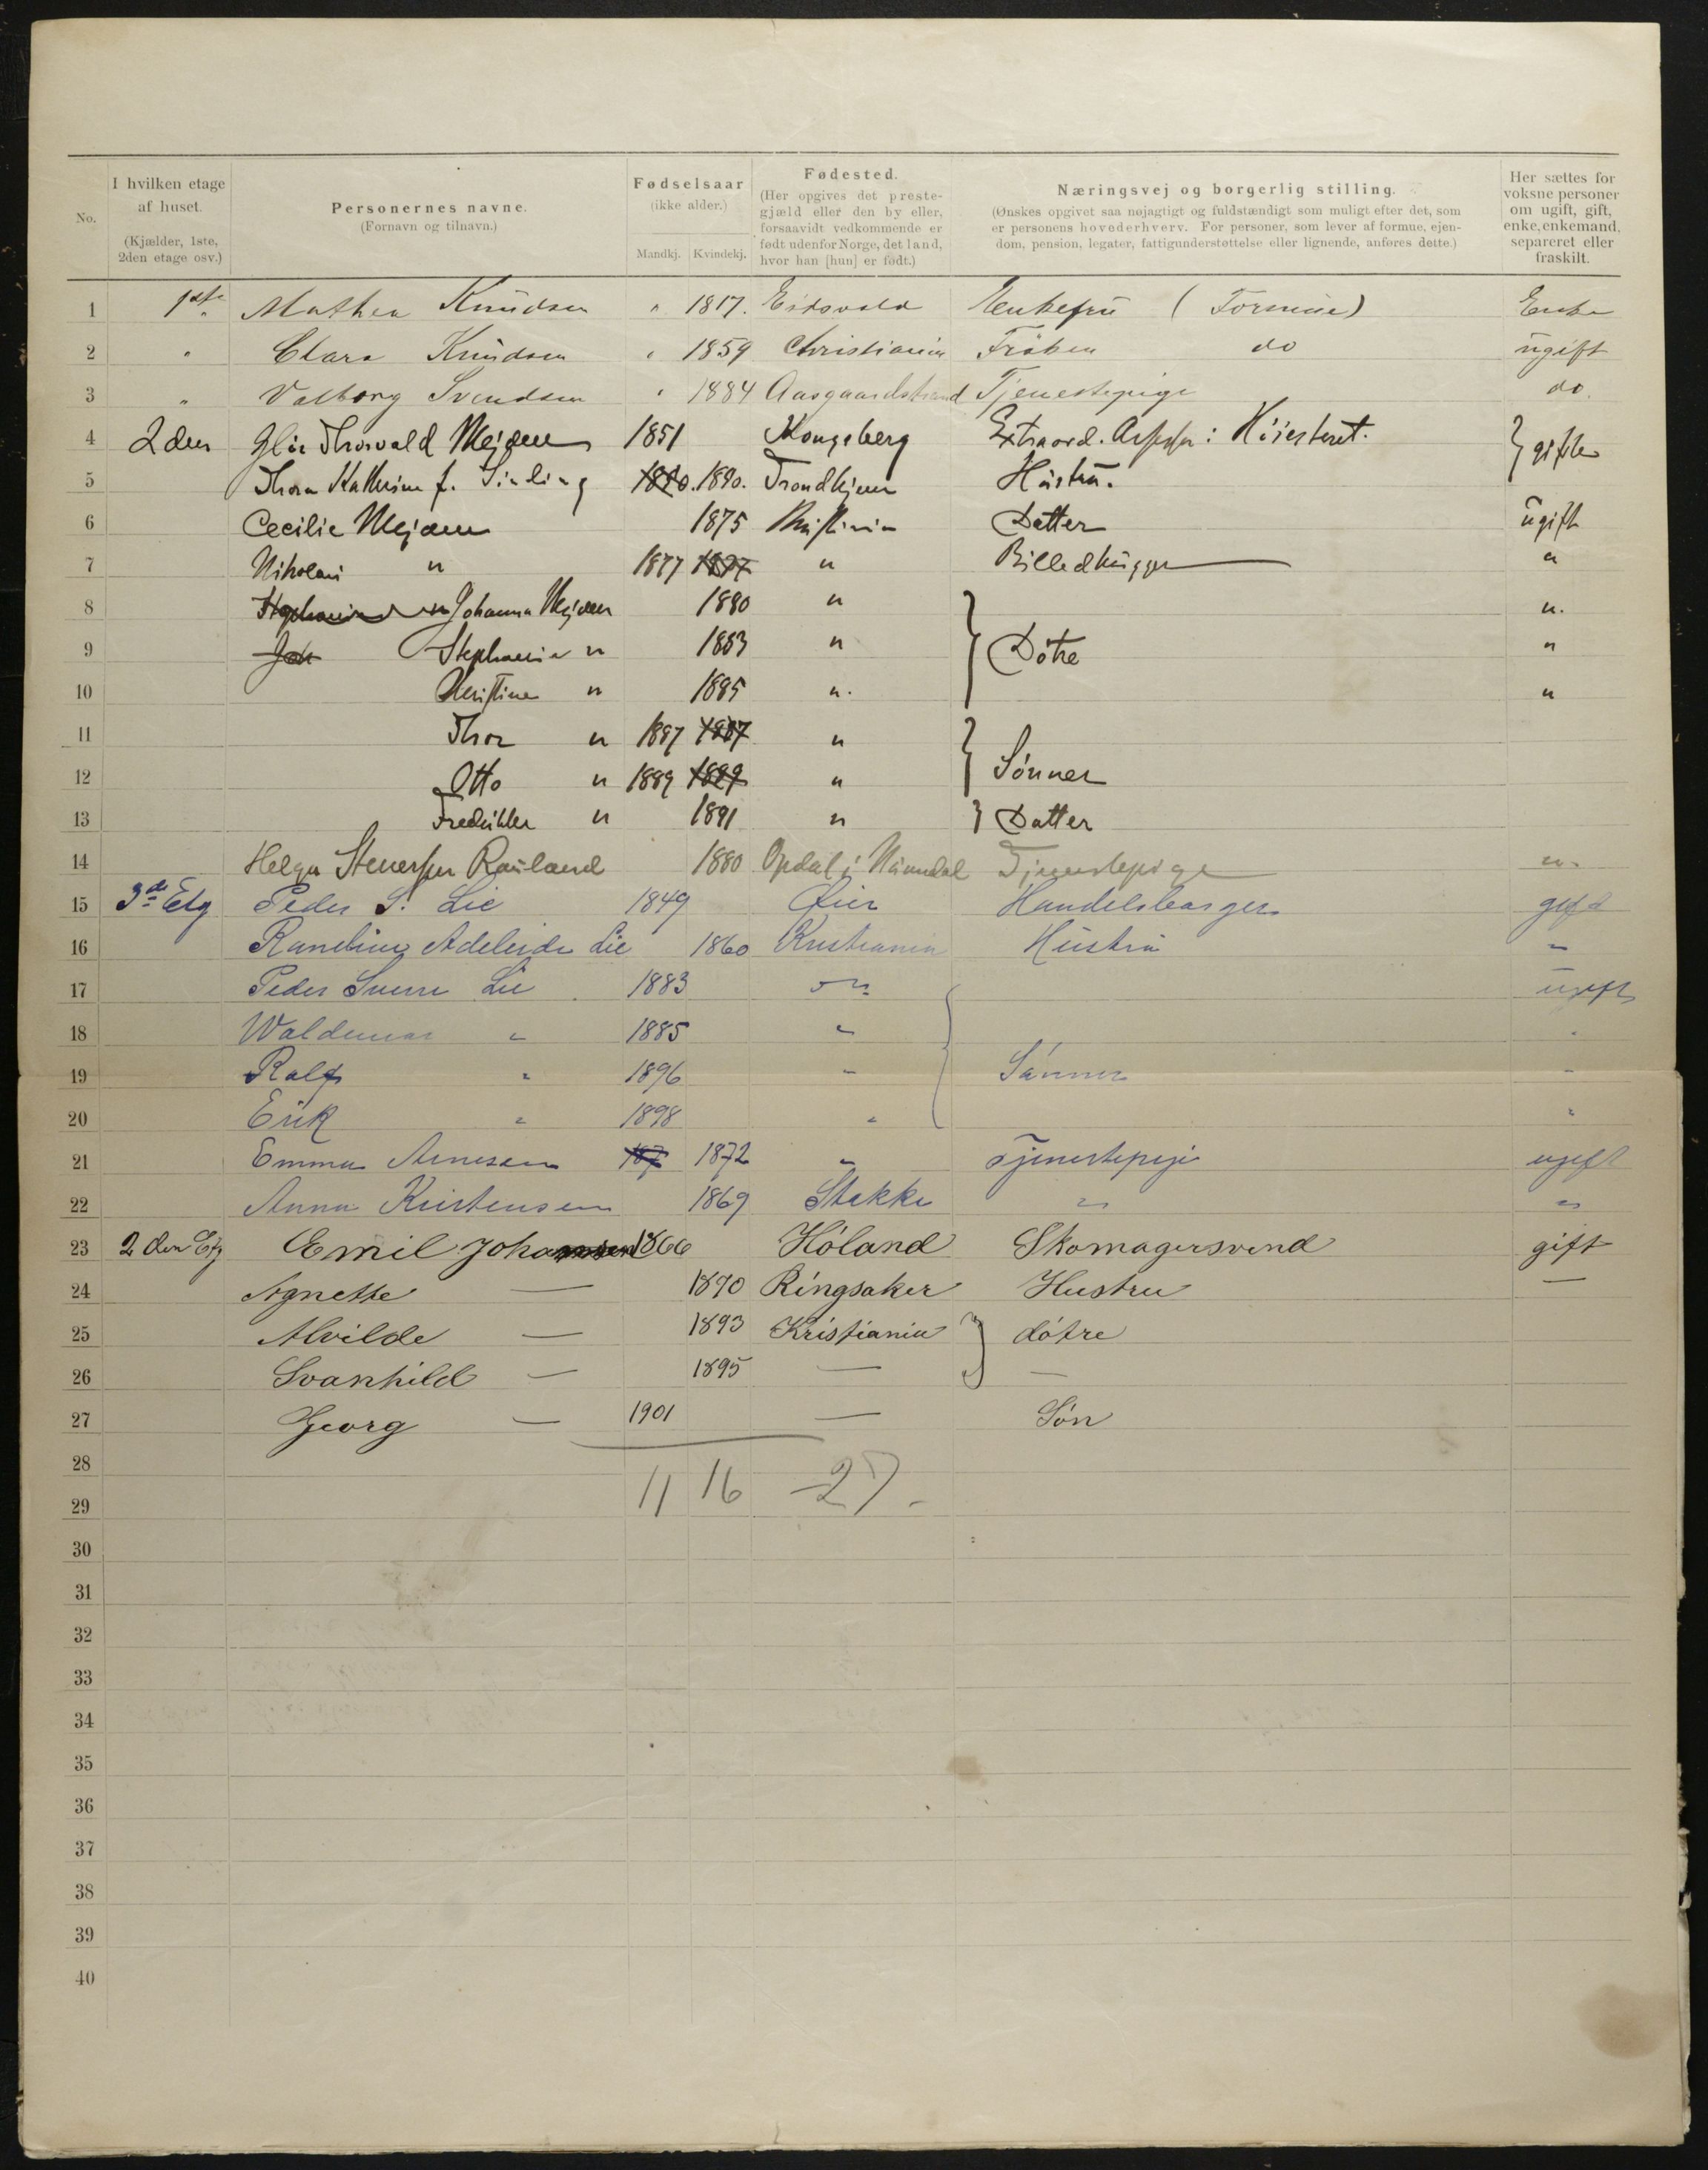 No.
I hvilken etage af huset.
(Kjælder, 1ste, 2den etage osv.)
Personernes navne.
(Fornavn og tilnavn.)
Fødselsaar
(ikke alder.)
Mandkj. Kvindekj.
Fødested.
(Her opgives det preste-
gjæld eller den by eller,
forsaavidt vedkommende er
født udenfor Norge, det land,
hvor han [hun] er født.)
Næringsvej og borgerlig stilling.
(Ønskes opgivet saa nøjagtigt og fuldstændigt som muligt efter det, som
er personens hovederhverv. For personer, som lever af formue, ejen-
dom, pension, legater, fattigunderstøttelse eller lignende, anføres dette.)
Her sættes for
voksne personer
om ugift, gift,
enke, enkemand,
separeret eller
fraskilt.
1 1ste Mathea Knudsen " 1817. Eidsvold Enkefru (Formue) Enke
2 " Clara Knudsen " 1859 Christiania Fröken do ugift
4 2den Thorvald Mejdell 1851 Kongsberg Extraord. Assessor i Höiesteret. } gifte
3 " Valborg Svendsen " 1884 Aasgaardstrand Tjenestepige do.
5 Thora Kathrine f. 1850. Trondhjem Hustru.
6 Cecilie Mejdell 1875 Kristiania Datter ugift
7 Nikolai " 1877 1877 " Billedhugger "
8 Stephanie " Johanna Mejdell 1880 " "
9 Joh Stephanie " 1883 " } Døtre "
10 Kristine " 1885 " "
11 Thor " 1887 1887 "
12 Otto " 1889 1889 " } Sønner
13 Fredrikke " 1891 " } Datter
14 Helga Stenersen Rauland 1880 Opdal i Numedal Tjenestepige "
15 3die Etg Peder S. Lie 1849 Øier Handelsborger gift
16 Adeleide Lie 1860 Kristiania Hustru "
17 Peder Sverre Lie 1883 " ugift
18 Waldemar " 1885 " "
19 Ralf " 1896 " } Sønner "
20 Erik " 1898 " "
21 Emma Arnesen 187 1872 " Tjenestepige ugift
22 Anna Kristensen 1869 Stokke " "
23 2den Etg Emil Johannsen 1866 Høland Skomagersvend gift
24 Agnethe — 1870 Ringsaker Hustru —
25 Alvilde — 1893 Kristiania } døtre
26 Svanhild — 1895 — —
27 Georg — 1901 — Søn
28
11 16 27.
29
30
31
32
33
34
35
36
37
38
39
40